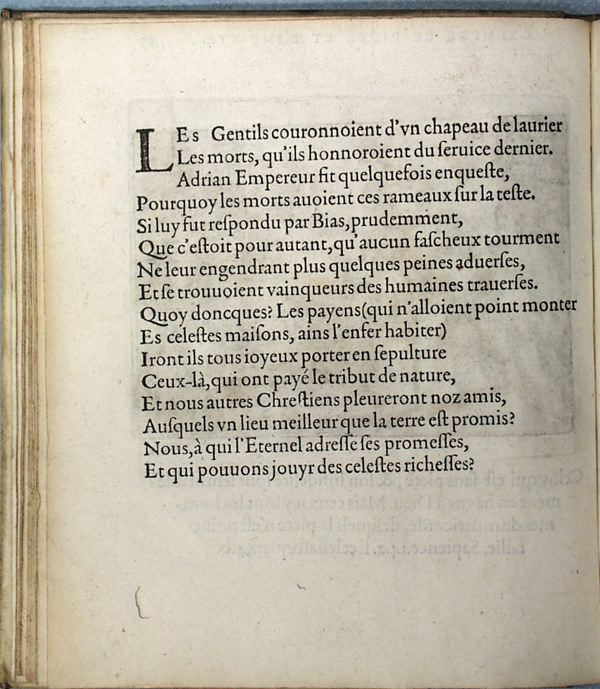 LEs Gentils couronnoient d'vn chapeau de laurier
Les morts, qu'ils honnoroient du ſeruice dernier.
Adrian Empereur fit quelquefois enqueſte,
Pourquoy les morts auoient ces rameaux ſur la teſte.
Si luy fut reſpondu par Bias, prudemment,
Que c'eſtoit pour autant, qu'aucun faſcheux tourment
Ne leur engendrant plus quelques peines aduerſes,
Et ſe trouuoient vainqueurs des humaines trauerſes.
Quoy doncques? Les payens (qui n'alloient point monter
Es celeſtes maiſons, ains l'enfer habiter)
Iront ils tous ioyeux porter en ſepulture
Ceux-là, qui ont payé le tribut de nature,
Et nous autres Chreſtiens pleureront noz amis,
Auſquels vn lieu meilleur que la terre eſt promis?
Nous, à qui l'Eternel adreſſe ſes promeſſes,
Et qui pouuons jouyr des celeſtes richeſſes?